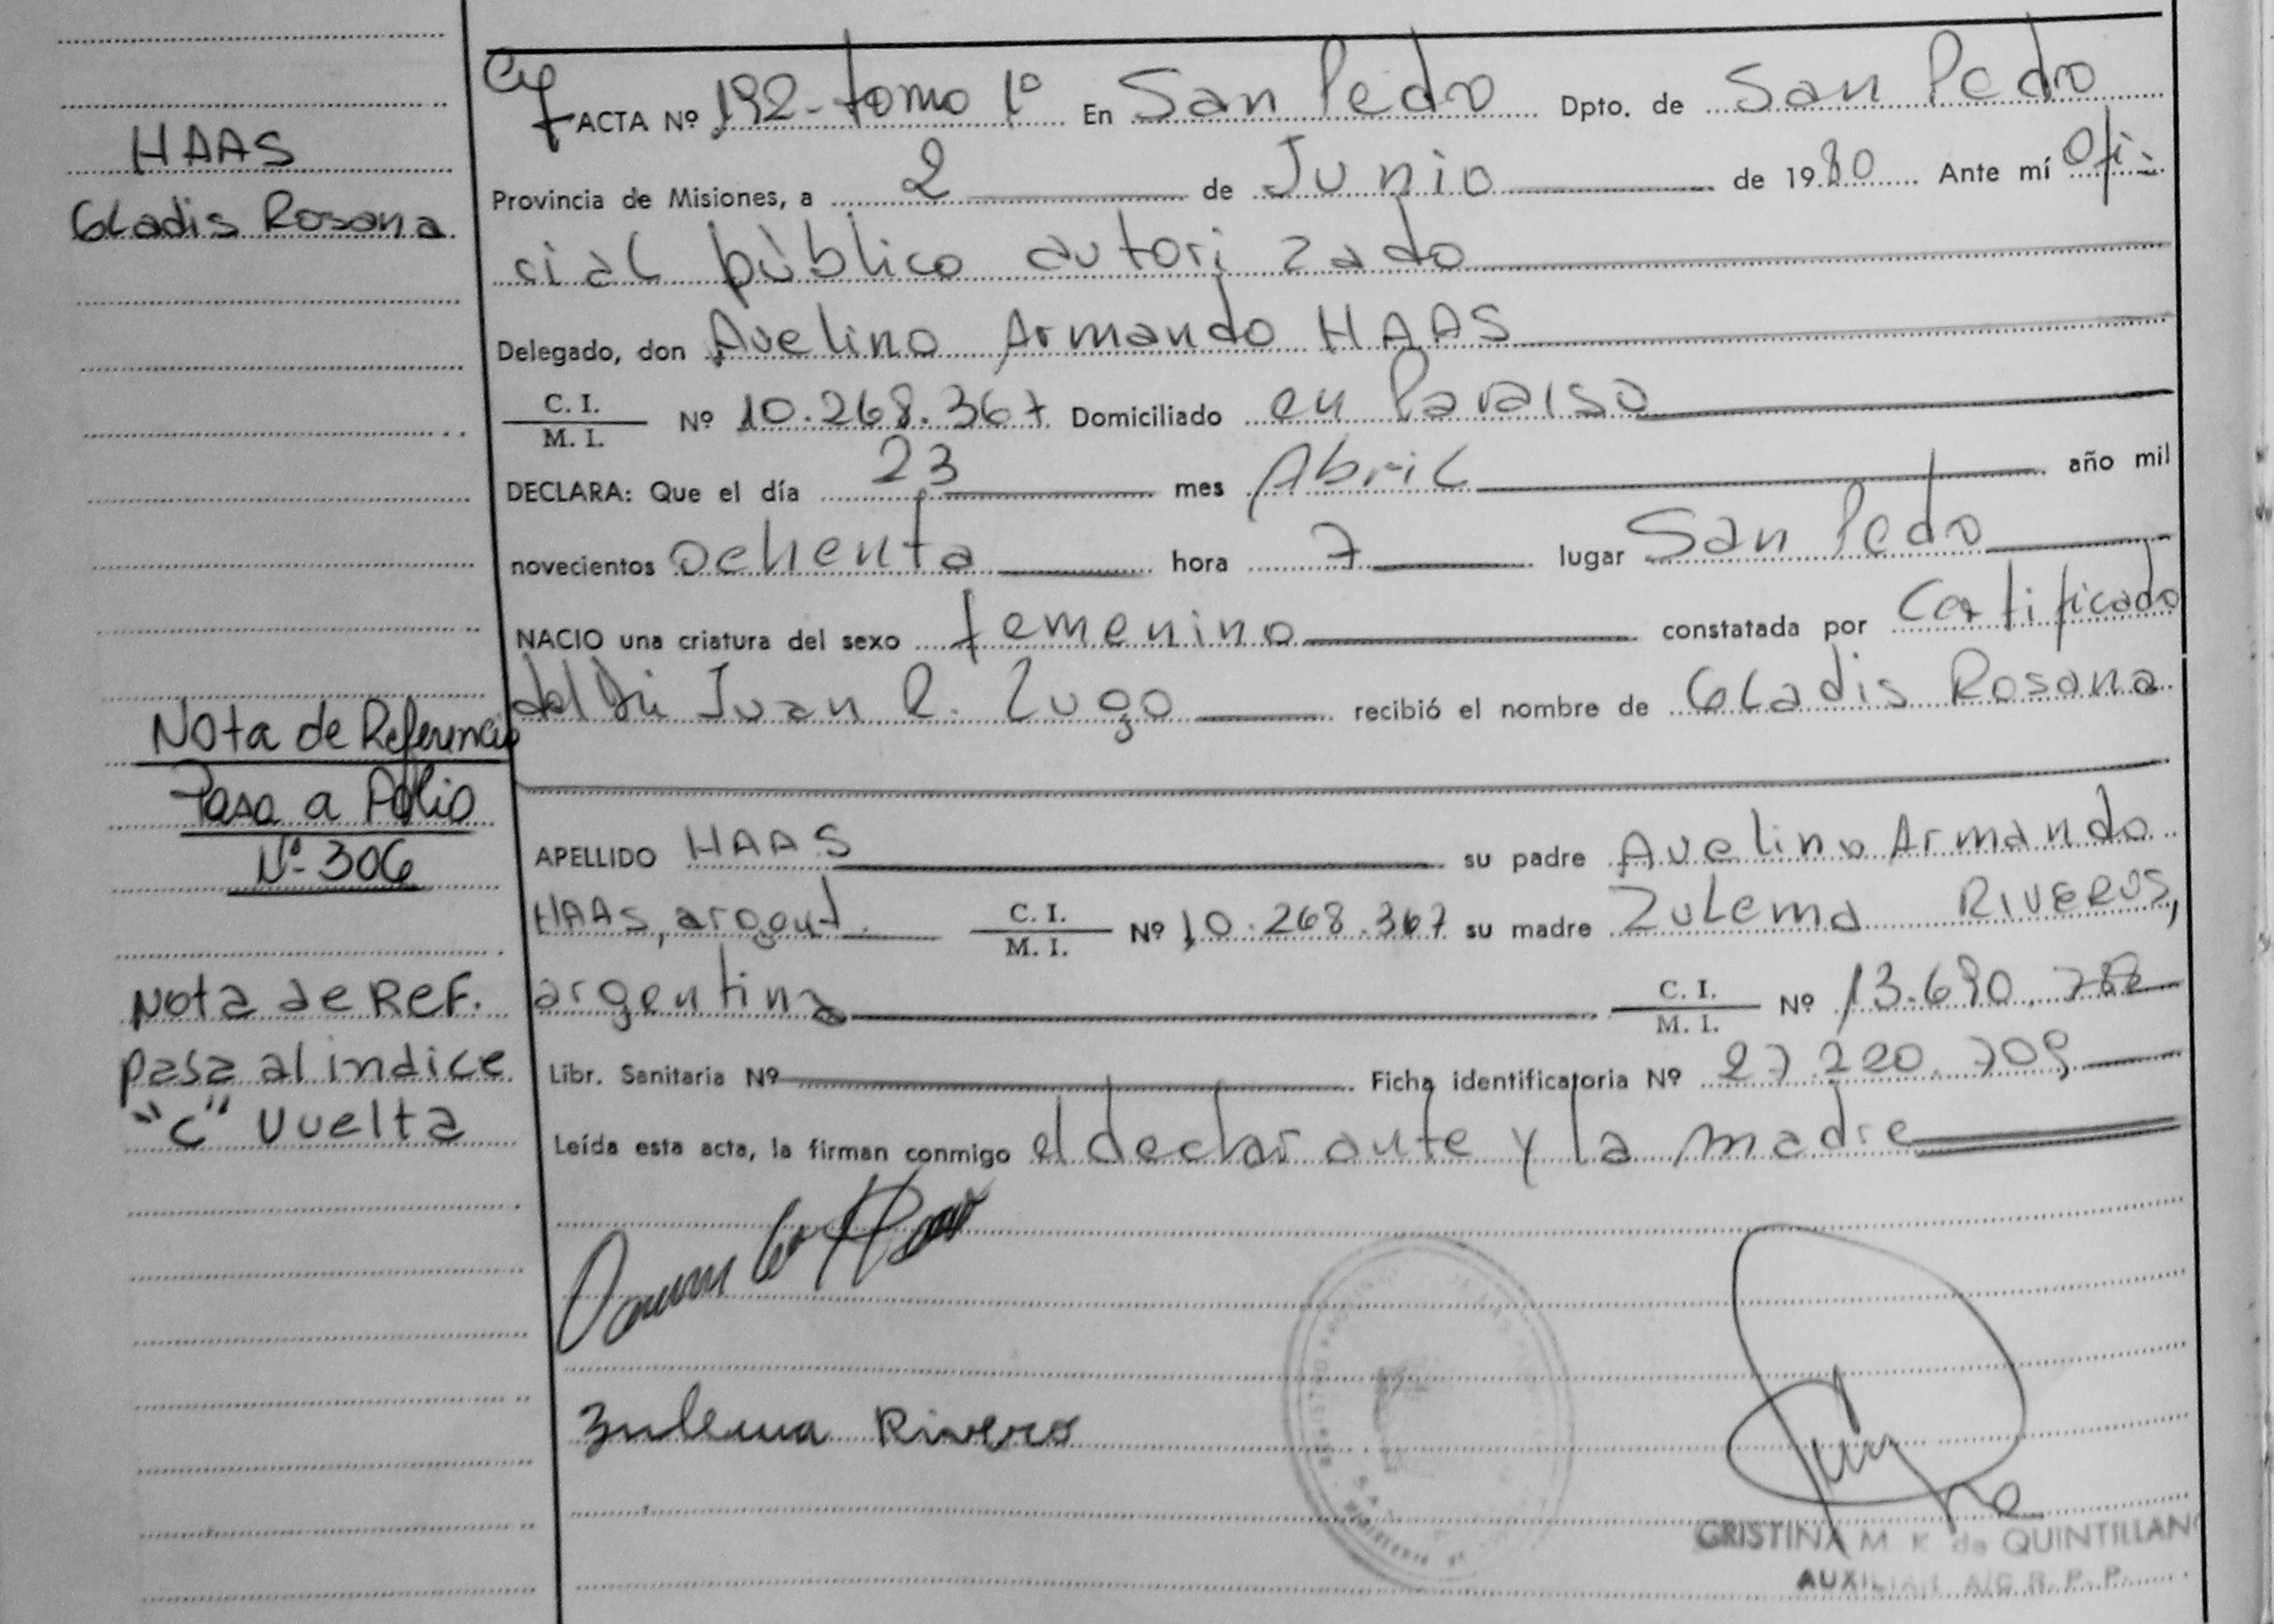 HAAS
Gladis Rosana
Nota de Referencia
Pasa a Folio
Nº 306
Nota de Ref.
pasa al indice
"C" Vuelta
ACTA Nº 192 - tomo 1º En San Pedro Dpto. de San Pedro
Provincia de Misiones, a 2 de Junio de 1980 Ante mí Ofi-
cial público autorizado
Delegado, don Avelino Armando HAAS
C. I. / M. I. Nº 10.268.367 Domiciliado en Paraiso
DECLARA: Que el día 23 mes Abril año mil
novecientos ochenta hora 7 lugar San Pedro
NACIO una criatura del sexo femenino constatada por Certificado
del Dr. Juan R. Lugo recibió el nombre de Gladis Rosana
APELLIDO HAAS su padre Avelino Armando
HAAS, argent. C. I. / M. I. Nº 10.268.367 su madre Zulema RIVEROS,
argentina C. I. / M. I. Nº 13.690.
Libr. Sanitaria Nº Ficha identificatoria Nº 27.220.709
Leída esta acta, la firman conmigo el declarante y la madre
Zulema Rivero
CRISTINA M. K. de QUINTILLAN
AUXILIAR A/C R. P. P.